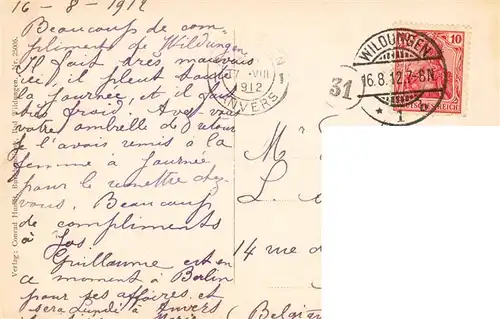 16 - 8 - 1912
Beaucoup de com-
pliment de Wildungen
Il fait très mauvais
ici, il pleut toute
la journée, et il fait
très froid. Avez-vous
votre ombrelle de retour
je l'avais remis à la
femme à journée
pour le remettre chez
vous. Beaucoup
de compliments
à Jos.
Guillaume est en
ce moment à Berlin
pour ses affaires et
sera Lundi à Anvers
Verlag: Conrad Hunds, Bad Wildungen. Nr.
VIII 1
1912
ANVERS
31
10
WILDUNGEN
16.8.12.7-8N
* 1
M
L
14 rue d
(Belgi